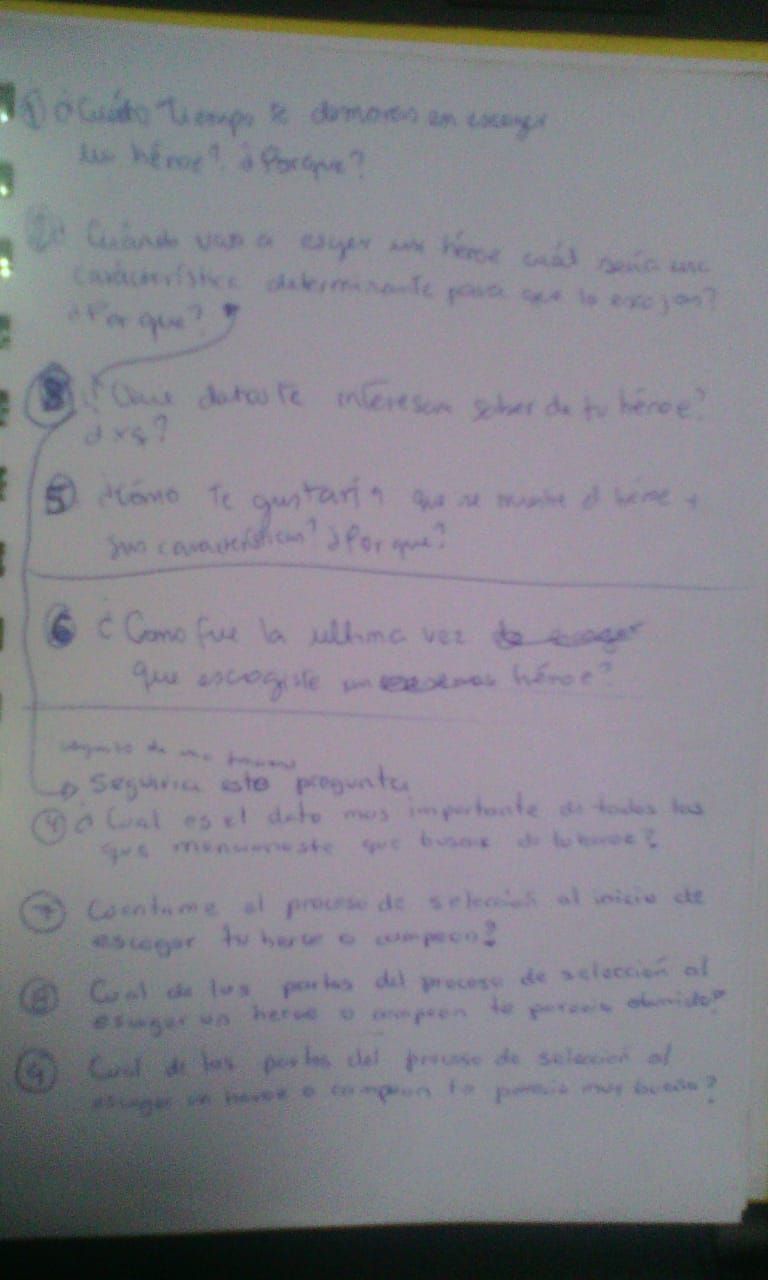 ① ¿Cuánto tiempo te demoras en escoger
un héroe? ¿Porque?
2 Cuándo van a escoger un héroe cuál sería una
característica determinante para que lo escojan?
¿Por que?
3 ¿Que datos te interesan saber de tu héroe?
¿xq?
5 ¿Cómo te gustaría que se muestre el héroe y
sus características? ¿Por que?
6 ¿Como fue la ultima vez
que escogiste un héroe?
de una
Seguiria esta pregunta
④ ¿Cual es el dato mas importante de todos los
que mencionaste que buscas de tu heroe?
⑦ Cuentame el proceso de selección al inicio de
escoger tu heroe o campeon?
⑧ Cual de las partes del proceso de selección al
escoger un heroe o campeon te parecio aburrido?
⑨ Cual de las partes del proceso de selección al
escoger un heroe o campeon te parecio muy bueno?